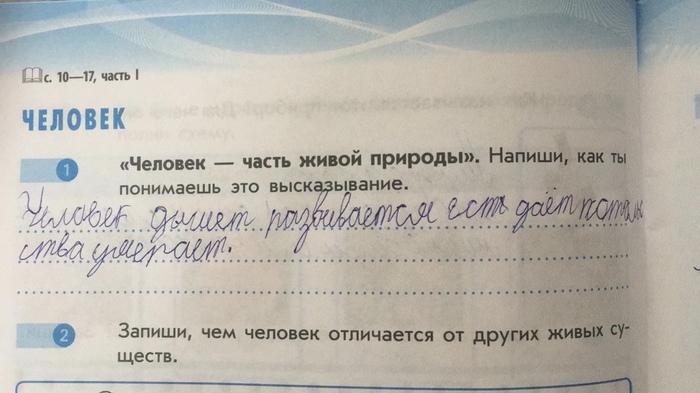 с. 10—17, часть I
ЧЕЛОВЕК
1 «Человек — часть живой природы». Напиши, как ты
понимаешь это высказывание.
Человек дышет развивается есть даёт потом
ства умерает.
2 Запиши, чем человек отличается от других живых су-
ществ.